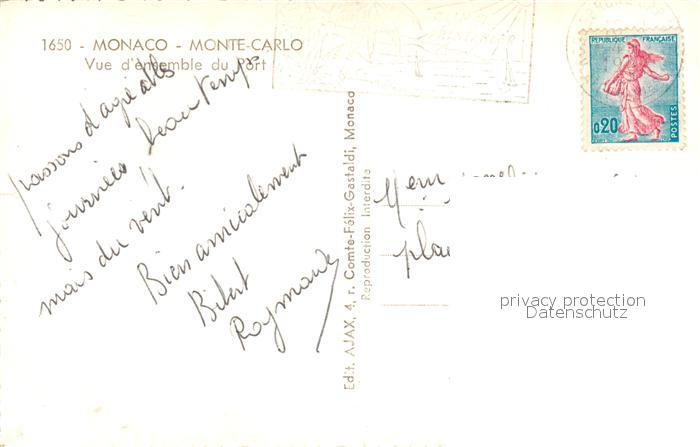 1650 - MONACO - MONTE-CARLO
Vue d'ensemble du Port
passons d'agréables
journées beau temps
mais du vent.
Bien amicalement
Raymonde
Edit. AJAX, 4, r. Comte-Félix-Gastaldi, Monaco
Reproduction Interdite
REPUBLIQUE FRANÇAISE
0,20
POSTES
privacy protection
Datenschutz